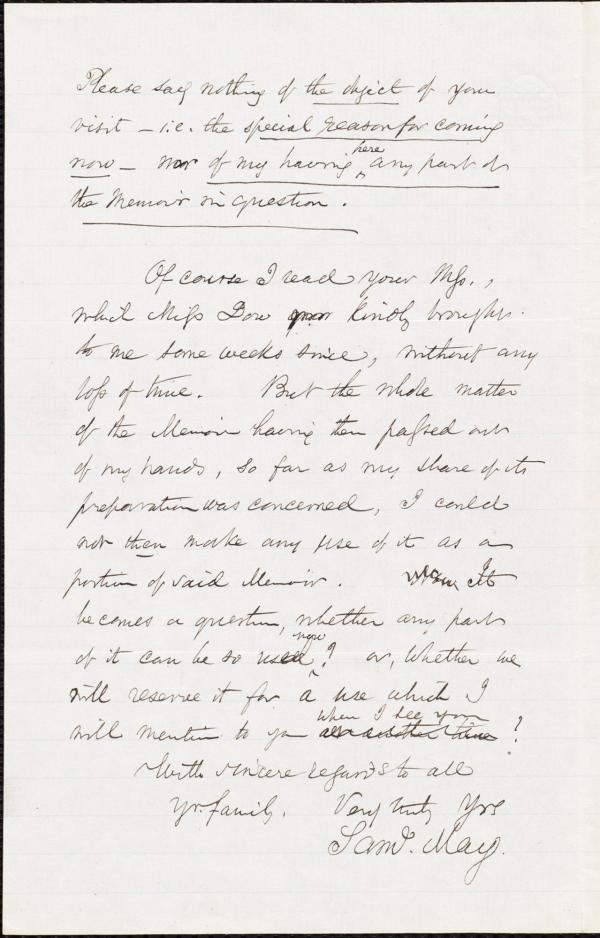 Please say nothing of the object of your
visit – i.e. the special reason for coming
now – nor of my having here any part of
the Memoir in question.
Of course I read your Mss.,
which Miss Dow kindly brought
to me some weeks since, without any
loss of time. But the whole matter
of the Memoir having then passed out
of my hands, so far as my share of its
preparation was concerned, I could
not then make any use of it as a
portion of said Memoir. It
becomes a question, whether any part
of it can be so used now? or, whether we
will reserve it for a use which I
will mention to you when I see you ?
With sincere regards to all
yr. family. Very truly Yrs
Saml. May.